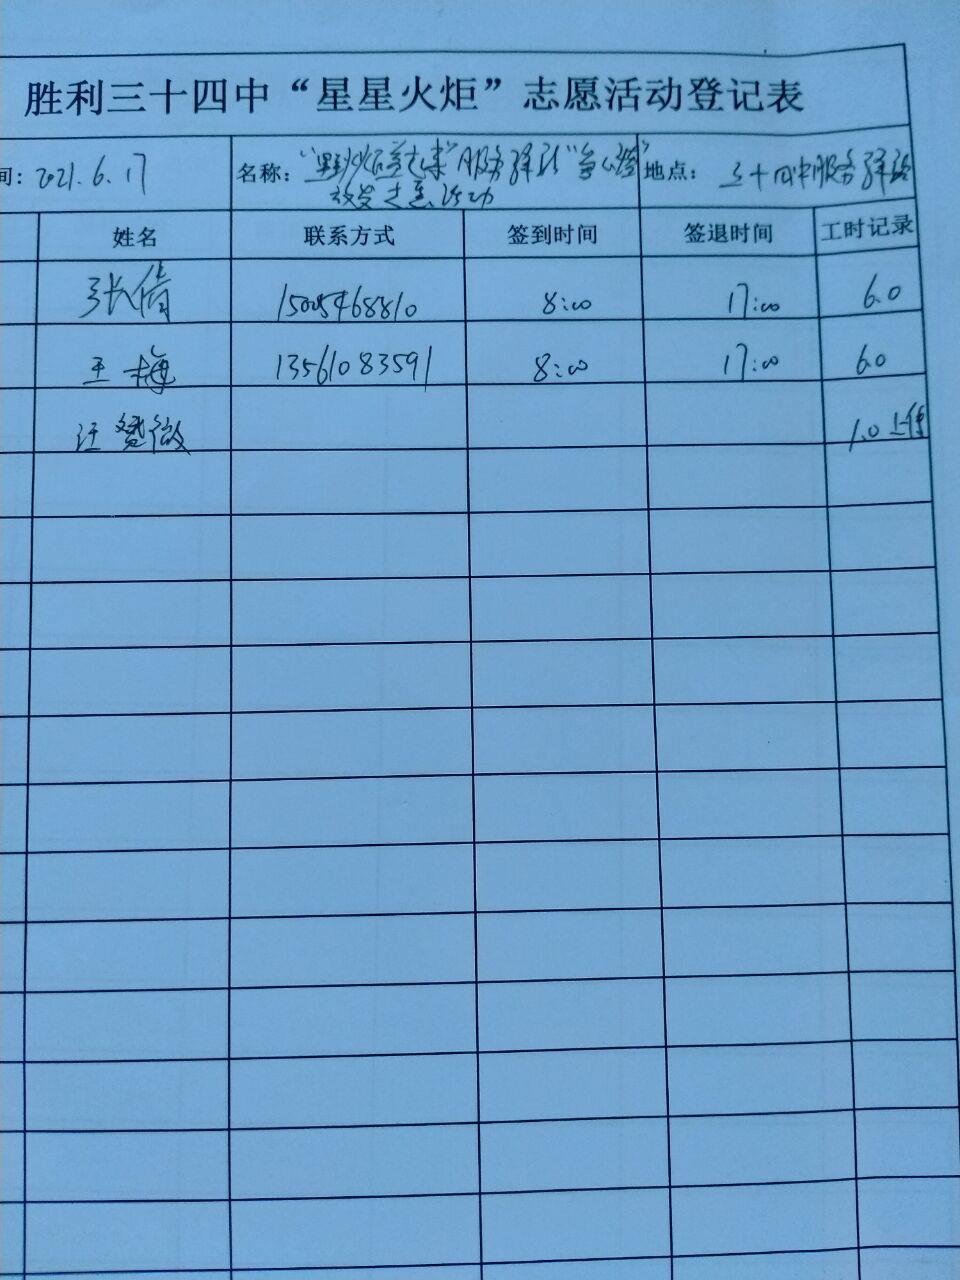 胜利三十四中“星星火炬”志愿活动登记表
间: 2021.6.17 名称: 服务驿站 地点: 三十四中服务驿站
志愿活动
姓名 联系方式 签到时间 签退时间 工时记录
张倩 15005468810 8:00 17:00 6.0
王梅 13561083591 8:00 17:00 6.0
汪 微 1.0上传